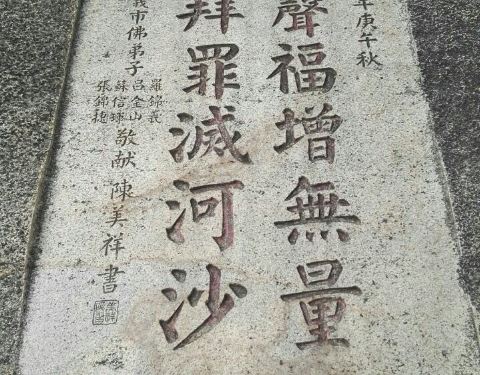 年庚午秋
聲福增無量
拜罪滅河沙
義市佛弟子
羅錦義
呂金山
蘇信球
張錦聰
敬献 陳美祥書